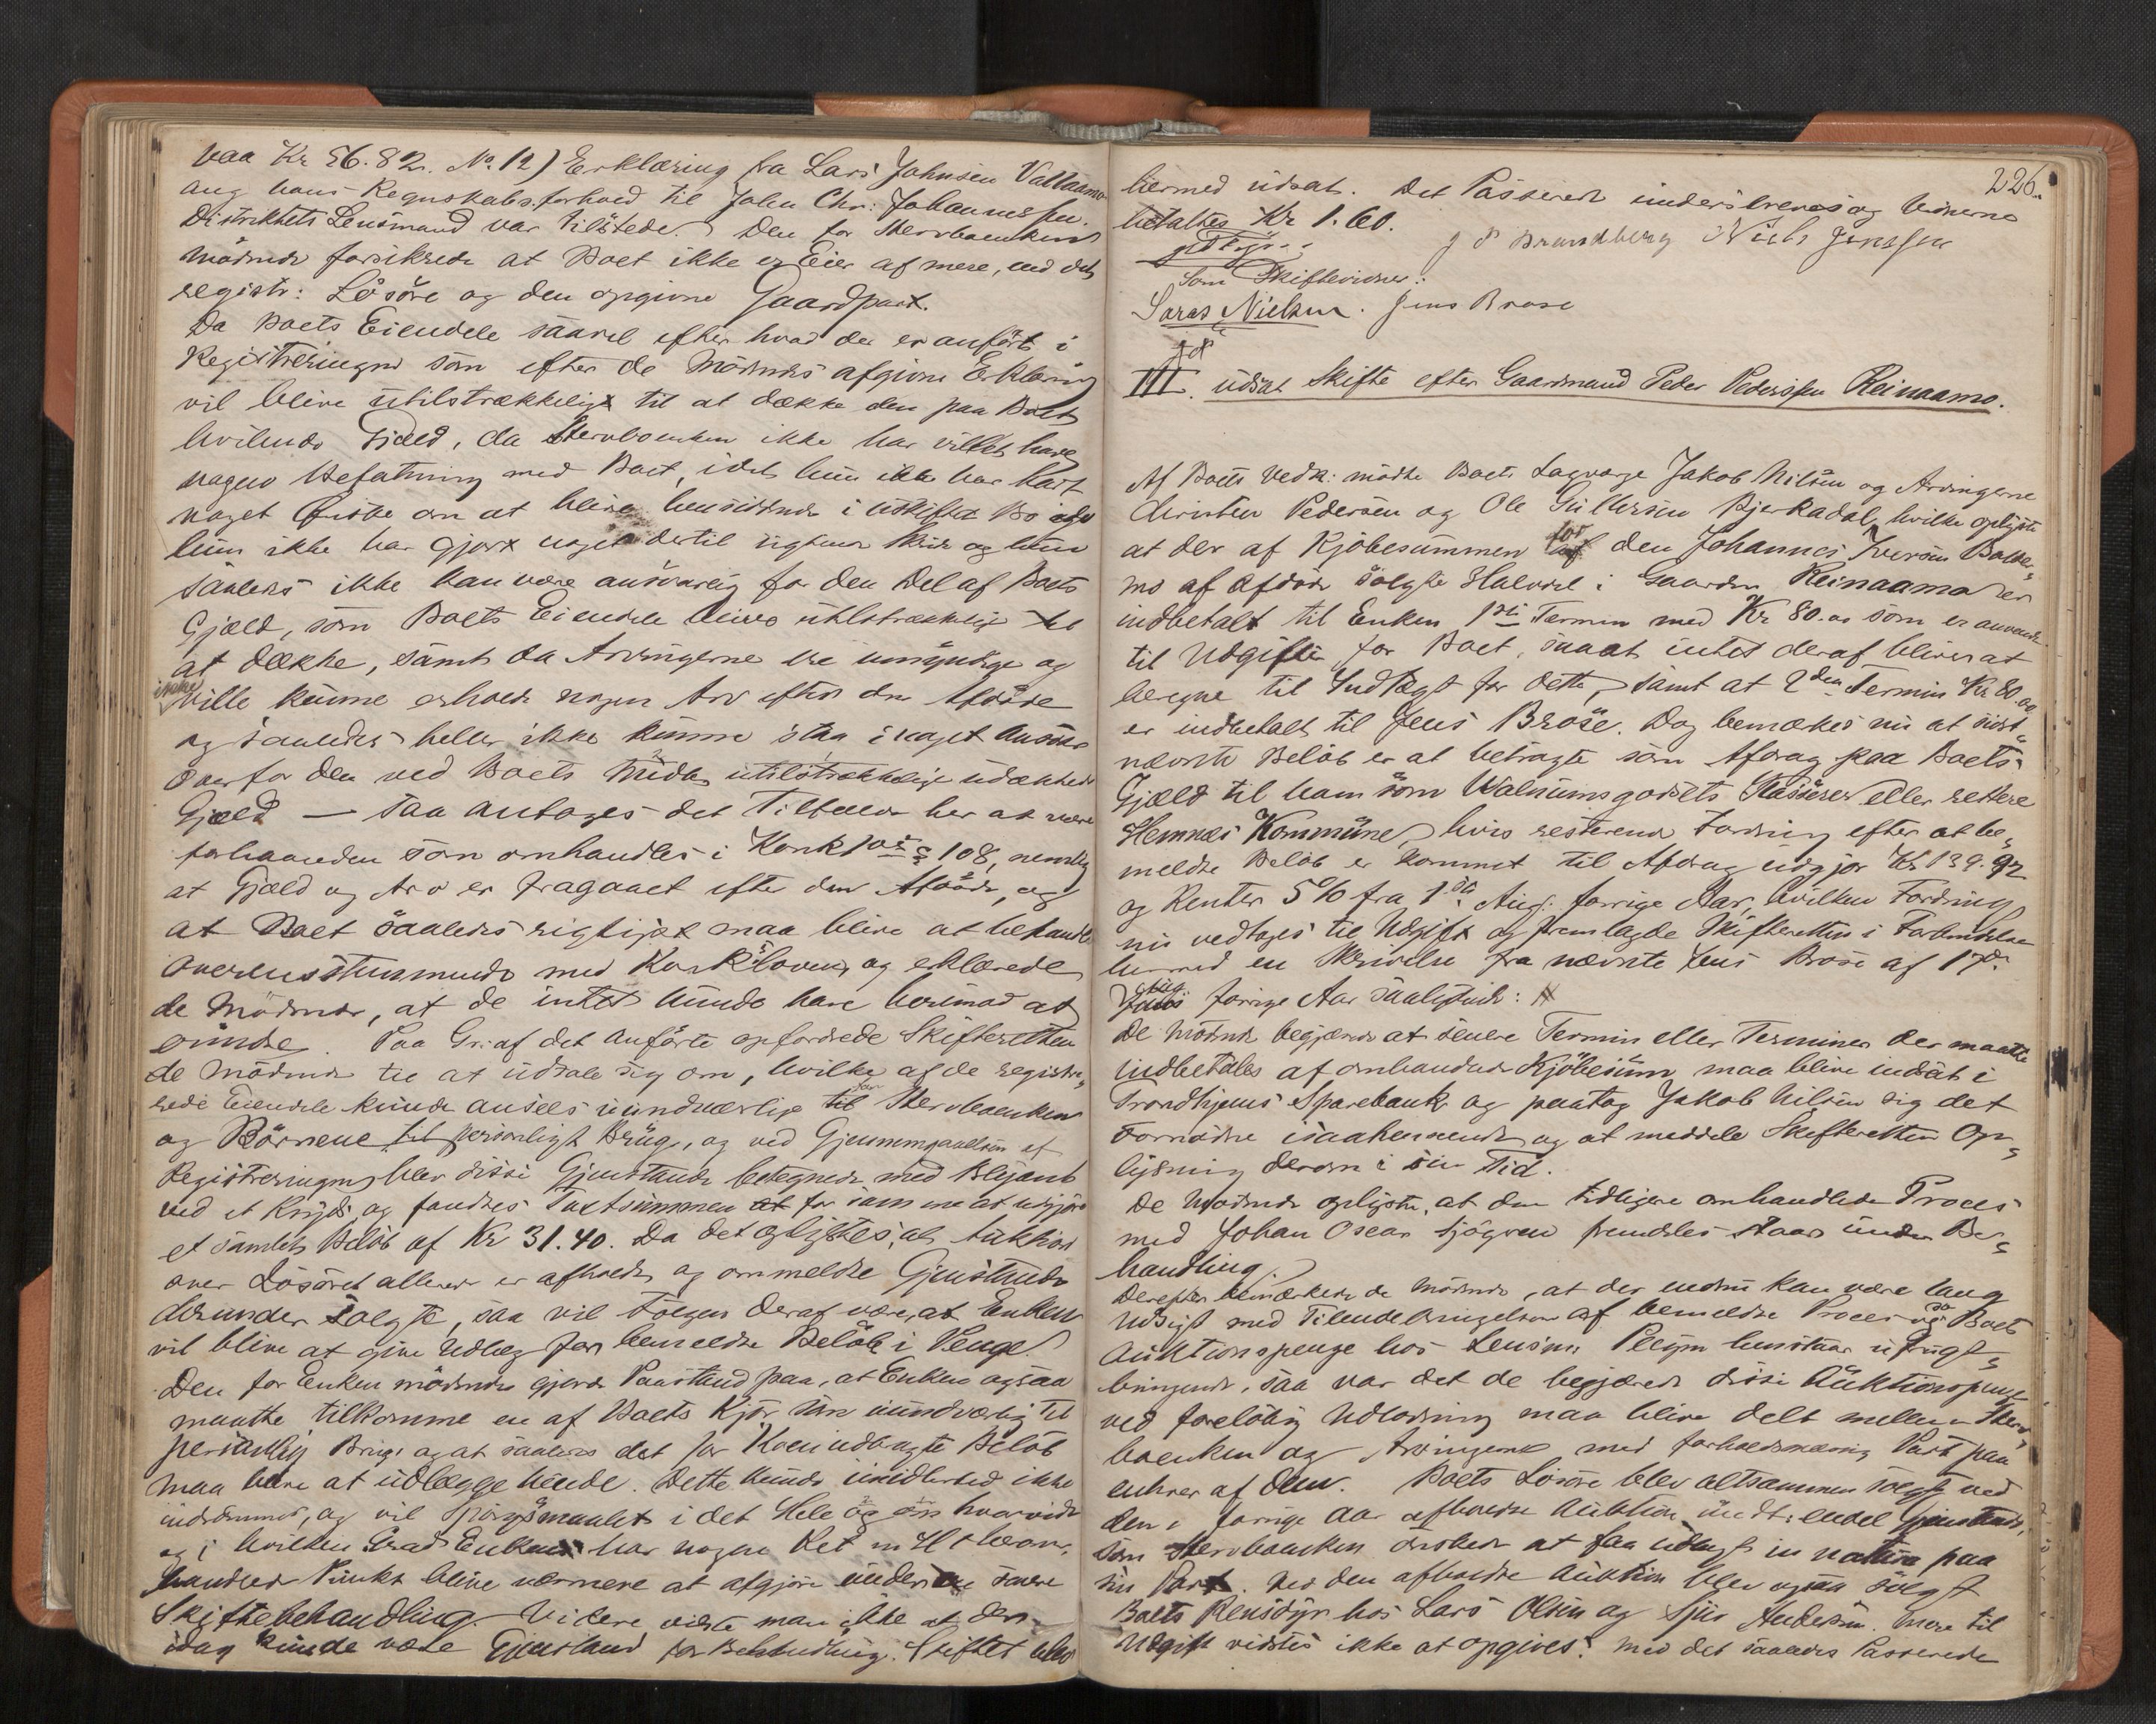 paa Kr 56.82. No 12) Erklæring fra Lars Johnsen Valtaamo
ang hans Regnskabsforhold til John Chr: Johannessen.
Distriktets Lensmand var tilstede. Den for Stervboenken
mødende forsikrede at Boet ikke er Eier af mere, end det
registr: Løsøre og den opgivne Gaardpart.
Da Boets Eiendele saavel efter hvad der er anført i
Registreringen som efter de Mødendes afgivne Erklæring
vil blive utilstrækkeligt til at dække den paa Boet
hvilende Gjæld, da Stervboenken ikke har villet have
nogen Befatning med Boet, idet hun ikke har havt
noget Ønske om at blive hensiddende i uskiftet Bo
hun ikke har gjort noget dertil sigtende Skridt og hun
saaledes ikke kan være ansvarlig for den Del af Boets
Gjæld, som Boets Eiendele blive utilstrækkelige til
at dække, samt da Arvingerne ere umyndige og
ikke ville kunne erholde nogen Arv efter den Afdøde
og saaledes heller ikke kunne staa i noget Ansvar
overfor den ved Boets Midler utilstrækkelige udækkede
Gjæld — saa antages det Tilfælde her at være
forhaanden som omhandles i Konkl § 108, nemlig
at Gjæld og Arv er fragaaet efter den Afdøde, og
at Boet saaledes rigtigst maa blive at behandle
overensstemmende med Konkloven og erklærede
de Mødende, at de intet kunde have herimod at
erindre. Paa Gr: af det anførte opfordrede Skifteretten
de Mødende til at udtale sig om, hvilke af de registre,
rede Eiendele kunde ansees uundværlige for Stervboenken
og Børnene til personligt Brug, og ved Gjennemgaaelsen af
Registreringen blev disse Gjenstande betegnede med Blyant
ved et Kryds og fandtes Taxtsummen for samme at udgjøre
et samlet Beløb af Kr 31.40. Da det oplystes, at Auktion
over Løsøret allerede er afholdt, og ommeldte Gjenstande
derunder solgte, saa vil Følgen deraf være, at Enken
vil blive at give Udlæg for bemeldte Beløb i Penge.
Den for Enken mødende gjorde Paastand paa, at Enken ogsaa
maatte tilkomme en af Boets Kjør som uundværlig til
personlig Brug og at saaledes det for Koen indbragte Beløb
maa være at udlægge hende. Dette kunde imidlertid ikke
indrømmes, og vil Spørgsmaalet i det Hele og om hvorvidt
og i hvilken Grad Enken har nogen Ret m H t heromhandlede
Punkt blive nærmere at afgjøre under senere
Skiftebehandling. Videre vidste man ikke at der
idag kunde være Gjenstand for Behandling. Skiftet blev
226.
hermed udsat. Det Passerede underskreves og Vidnerne
betaltes Kr 1.60.
J P Brandberg Niels Jenssen
Som Skiftevidner:
Søren Nielsen. Jens Brose
III. udsat Skifte efter Gaardmand Peder Pederssen Reinaamo.
Af Boets Vedk: mødte Boets Lagværge Jakob Nilsen og Arvingerne
Christen Pedersen og Ole Gulliksen Bjerkadal, hvilke oplyste
at der af Kjøbesummen for den Johannes Iversen
mo af Afdøde solgte Halvdel i Gaarden Reinaamo er
indbetalt til Enken 1ste Termin med Kr 80.00 som er anvendt
til Udgifter for Boet, saaat intet deraf bliver at
beregne til Indtægt for dette, samt at 2den Termin Kr 80.00
er indbetalt til Jens Brose. Dog bemærkes nu at sidst,
nævnte Beløb er at betragte som Afdrag paa Boets
Gjæld til ham som Walnumsgodsets Kasserer eller rettere
Hemnæs Kommune, hvis resterende Fordring efter at be,
meldte Beløb er kommet til Afdrag udgjør Kr 139.92
og Renter 5% fra 1ste Aug: forrige Aar, hvilken Fordring
nu vedtages til Udgift og fremlagde Skifteretten i Forbindelse
hermed en Skrivelse fra nævnte Jens Brose af 17de
Aug forrige Aar saalydende:
De Mødende begjærede at senere Termin eller Terminer der maatte
indbetales af omhandlede Kjøbesum maa blive indsat i
Trondhjems Sparebank og paatog Jakob Nilsen sig det
Fornødne isaahenseende og at meddele Skifteretten Op,
lysning derom i sin Tid.
De Mødende oplyste, at den tidligere omhandlede Proces
med Johan Oscar Sjögren fremdeles staar under Be,
handling.
Derefter bemærkede de Mødende, at der endnu kan være lang
Udsigt med Tilendebringelsen af bemeldte Proces og da Boets
Auktionspenge hos Lensm Pleym henstaar ufrugt,
bringende, saa var det de begjærede disse Auktionspenge
ved foreløbig Udlodning maa blive delt mellem Sterv,
boenken og Arvingerne med forholdsmæssig Part paa
enhver af dem. Boets Løsøre blev altsammen solgt ved
den i forrige Aar afholdte Auktion undt: endel Gjenstande,
som Stervboenken ønskede at faa udlagt in natura paa
sin Part. Ved den afholdte Auktion blev ogsaa solgt
Boets Rensdyr hos Lars Olsen og Sjur Andersen. Mere til
Udgift vidstes ikke at opgives. Med det saaledes Passerede